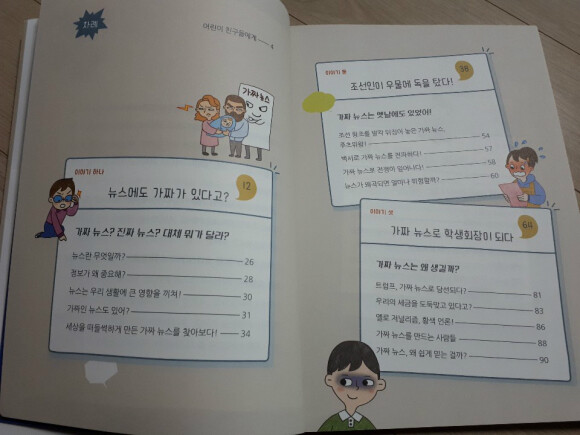 차례
어린이 친구들에게 4
가짜뉴스
이야기 하나
뉴스에도 가짜가 있다고? 12
가짜 뉴스? 진짜 뉴스? 대체 뭐가 달라?
뉴스란 무엇일까? 26
정보가 왜 중요해? 28
뉴스는 우리 생활에 큰 영향을 끼쳐! 30
가짜인 뉴스도 있어? 31
세상을 떠들썩하게 만든 가짜 뉴스를 찾아보다! 34
이야기 둘
조선인이 우물에 독을 탔다! 38
가짜 뉴스는 옛날에도 있었어!
조선 핑크를 발칵 뒤집어 놓은 가짜 뉴스,
주초위왕! 54
백서로 가짜 뉴스를 전파하다! 57
가짜 뉴스로 전쟁이 일어나다! 58
뉴스가 왜곡되면 얼마나 위험할까? 60
이야기 셋
가짜 뉴스로 학생회장이 되다 64
가짜 뉴스는 왜 생길까?
트럼프, 가짜 뉴스로 당선되다? 81
우리의 세금을 도둑맞고 있다고? 83
옐로 저널리즘, 황색 언론! 86
가짜 뉴스를 만드는 사람들 88
가짜 뉴스, 왜 쉽게 믿는 걸까? 90